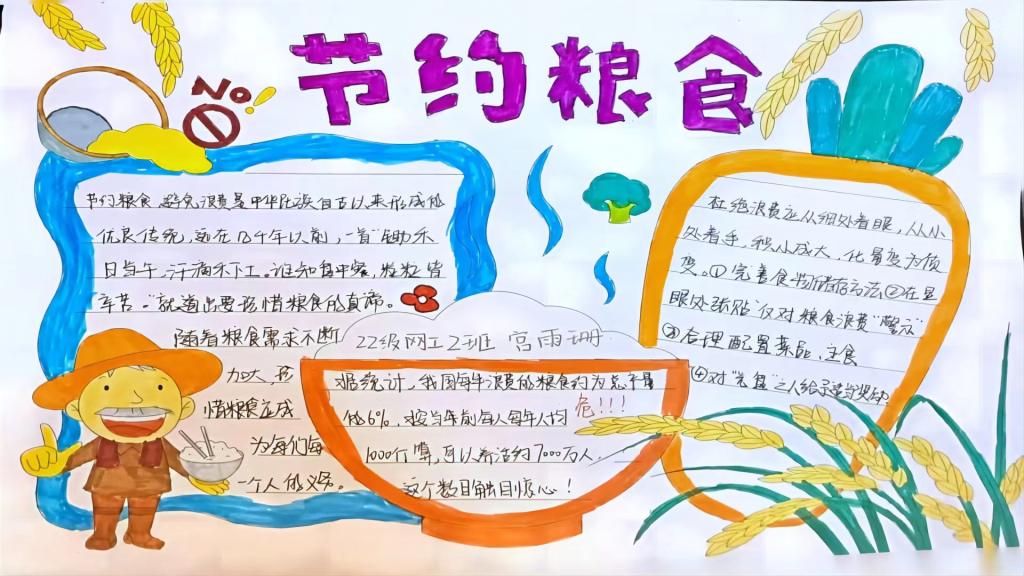 节约粮食
No!
节约粮食,避免浪费是中华民族自古以来形成的
优良传统,远在几千年以前,一首"锄禾
日当午,汗滴禾下土。谁知盘中餐,粒粒皆
辛苦。"就道出要珍惜粮食的真谛。
随着粮食需求不断
加大,节
惜粮食应成
为每们每
一个人的义务。
22级网工2班 宫雨珊
据统计,我国每年浪费的粮食约为总产量
的6%,按当年前每人每年人均
危!!!
1000斤算,可以养活约7000万人.
这个数目触目惊心!
杜绝浪费应从细处着眼,从小
处着手,积小成大,化量变为质
变。①完善食物储存方法②在显
眼处张贴"仅对粮食浪费"警示"
③合理配置菜品、主食
④对"光盘"之人给予适当奖励.